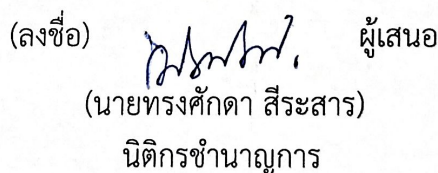 (ลงชื่อ) ผู้เสนอ
(นายทรงศักดา สีระสาร)
นิติกรชำนาญการ